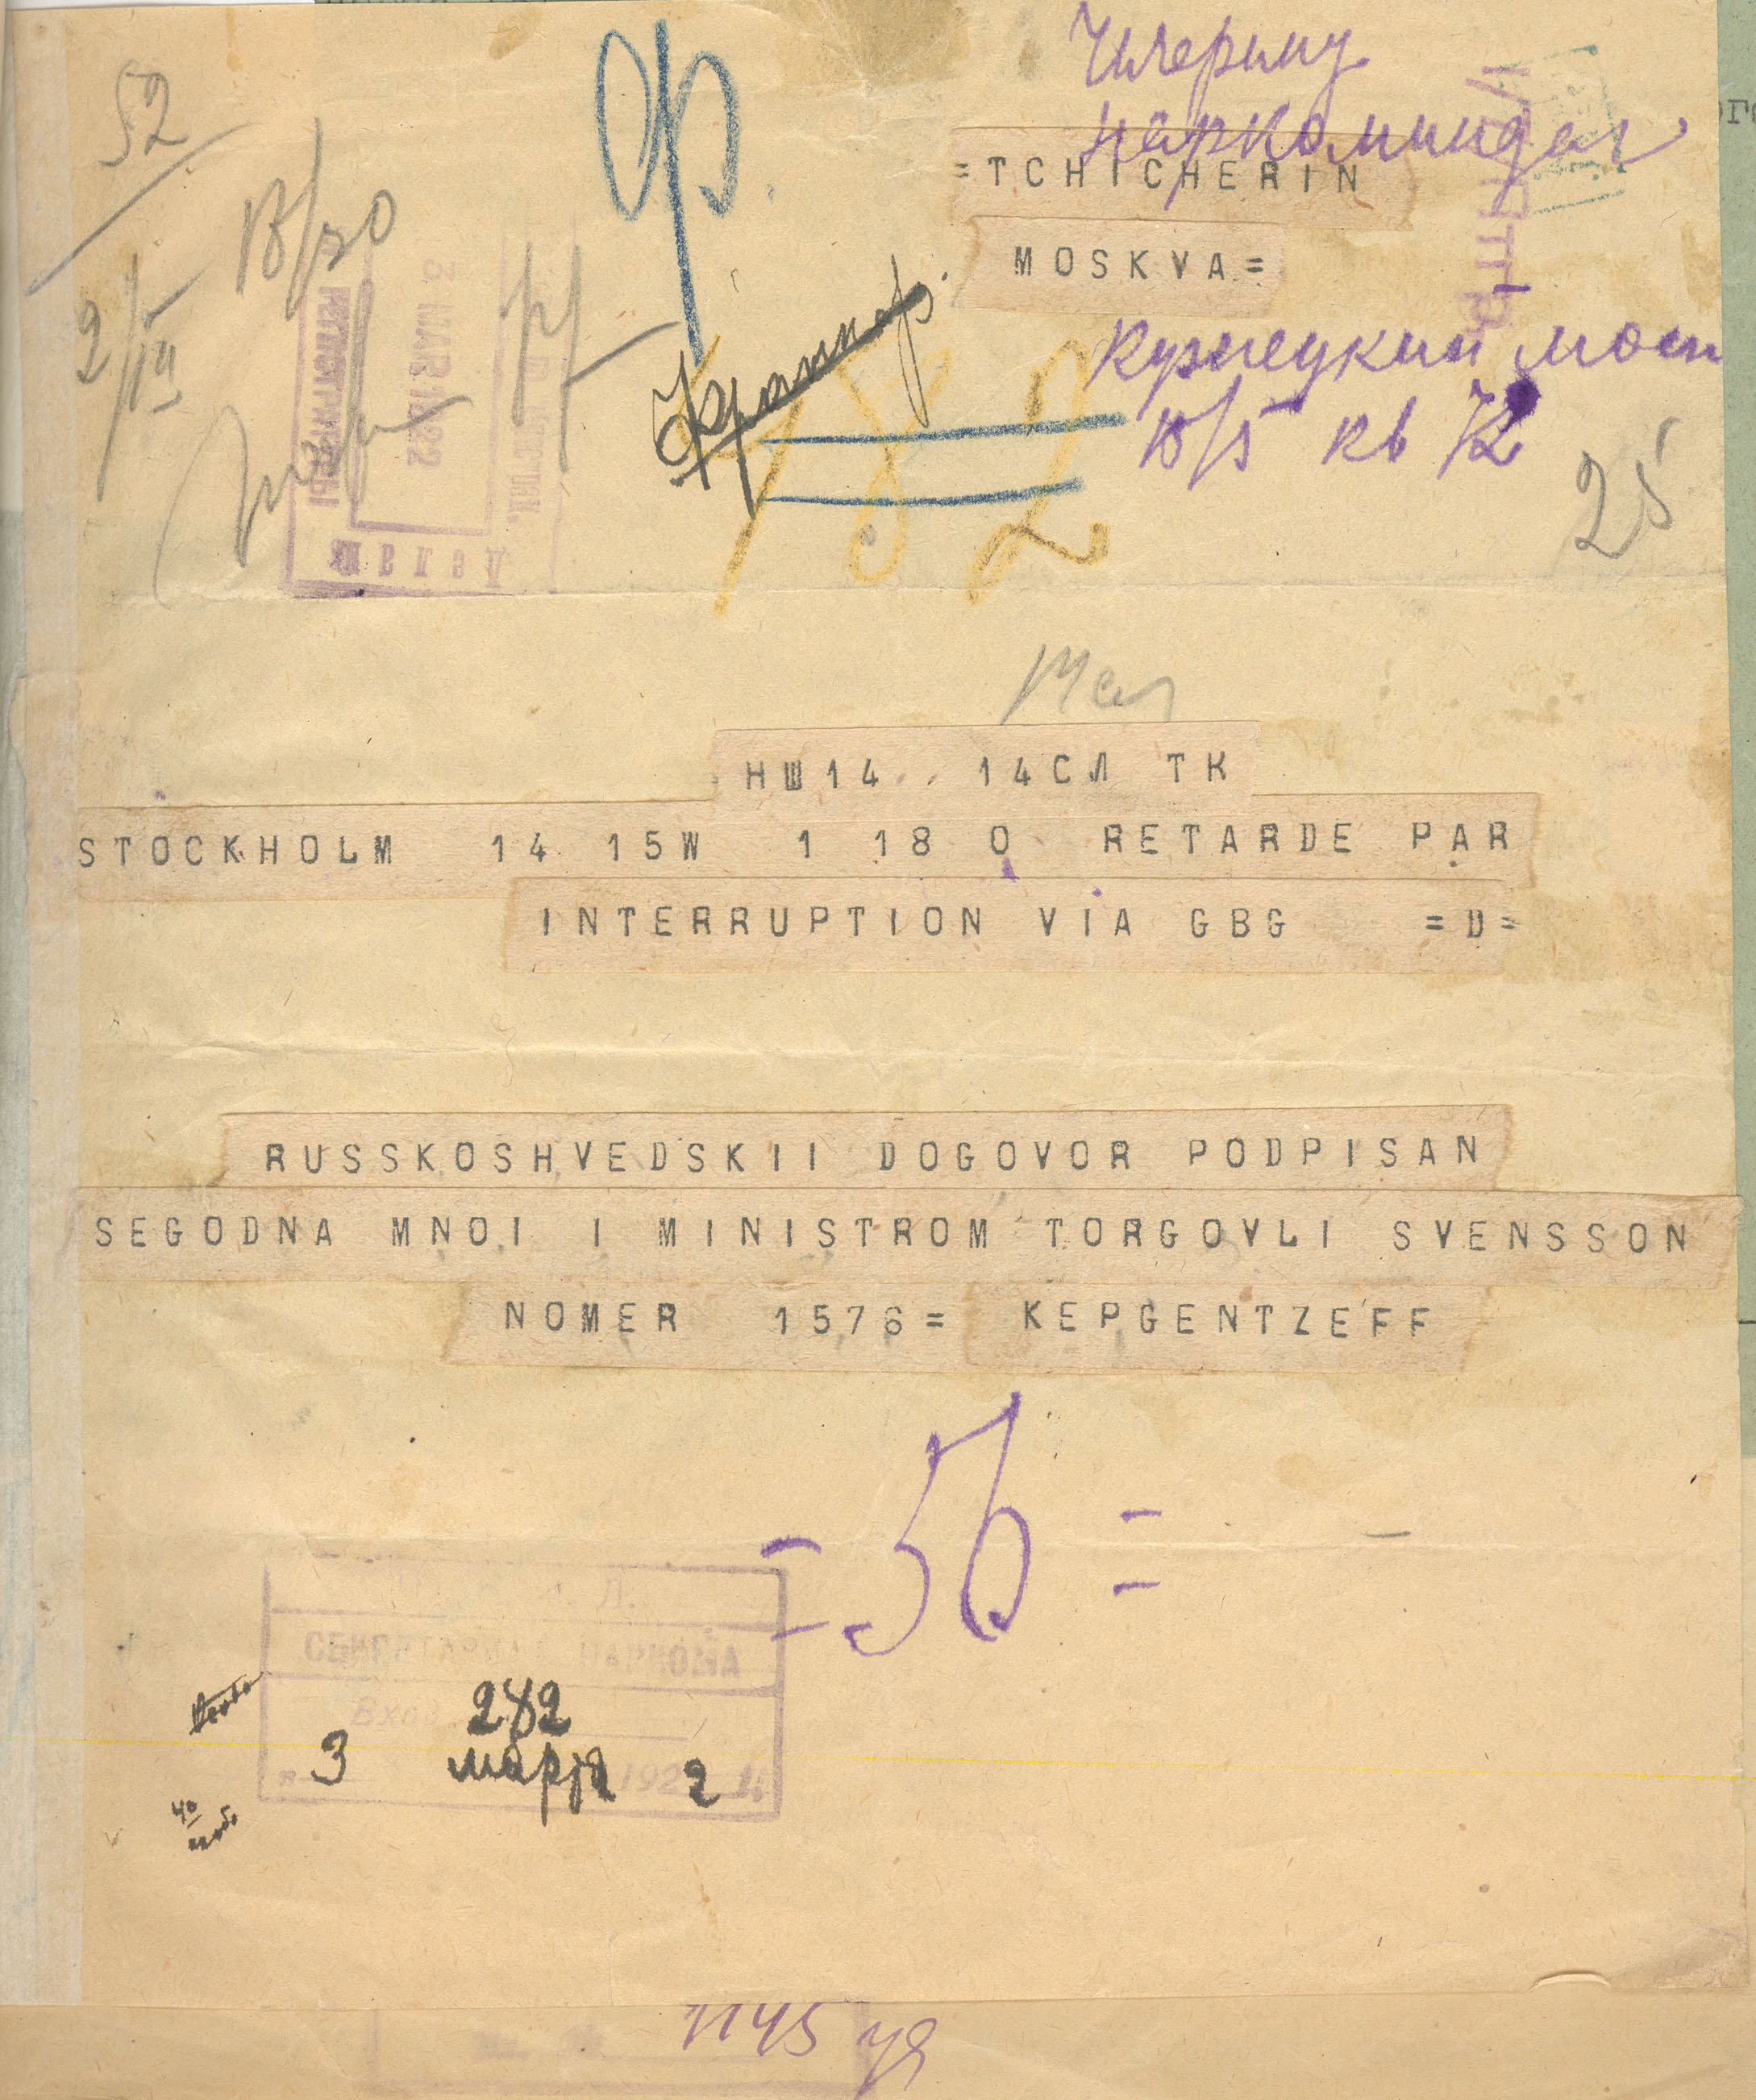 52
Чичерину
Наркоминдел
=TCHICHERIN
MOSKVA=
3 MAR 1922
РЕГИСТРАТУРЫ
Делам
Кузнецкий мост
кв 72
182
25
НШ14 14СЛ ТК
STOCKHOLM 14 15W 1 18 0 RETARDE PAR
INTERRUPTION VIA GBG =D=
RUSSKOSHVEDSKII DOGOVOR PODPISAN
SEGODNA MNOI I MINISTROM TORGOVLI SVENSSON
NOMER 1576= KEPGENTZEFF
=56=
СЕКРЕТАРИАТ НАРКОМА
282
3 марта 1922
1145